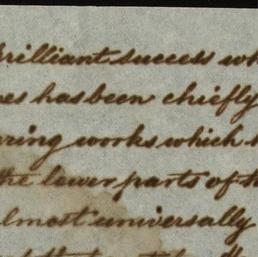 brilliant success wh
es has been chiefly
ring works which
the lower parts of
almost universally